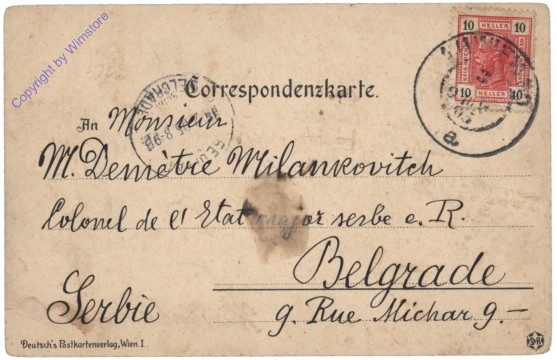 Copyright by Wimstore
10 10
HELLER HELLER
10 10
Correspondenzkarte.
BELGRADE
An Monsieur
M. Demetre Milankovitch
a
Colonel de l' Etat major serbe e. R.
Belgrade
Serbie 9. Rue Michar 9.—
Deutsch's Postkartenverlag, Wien I